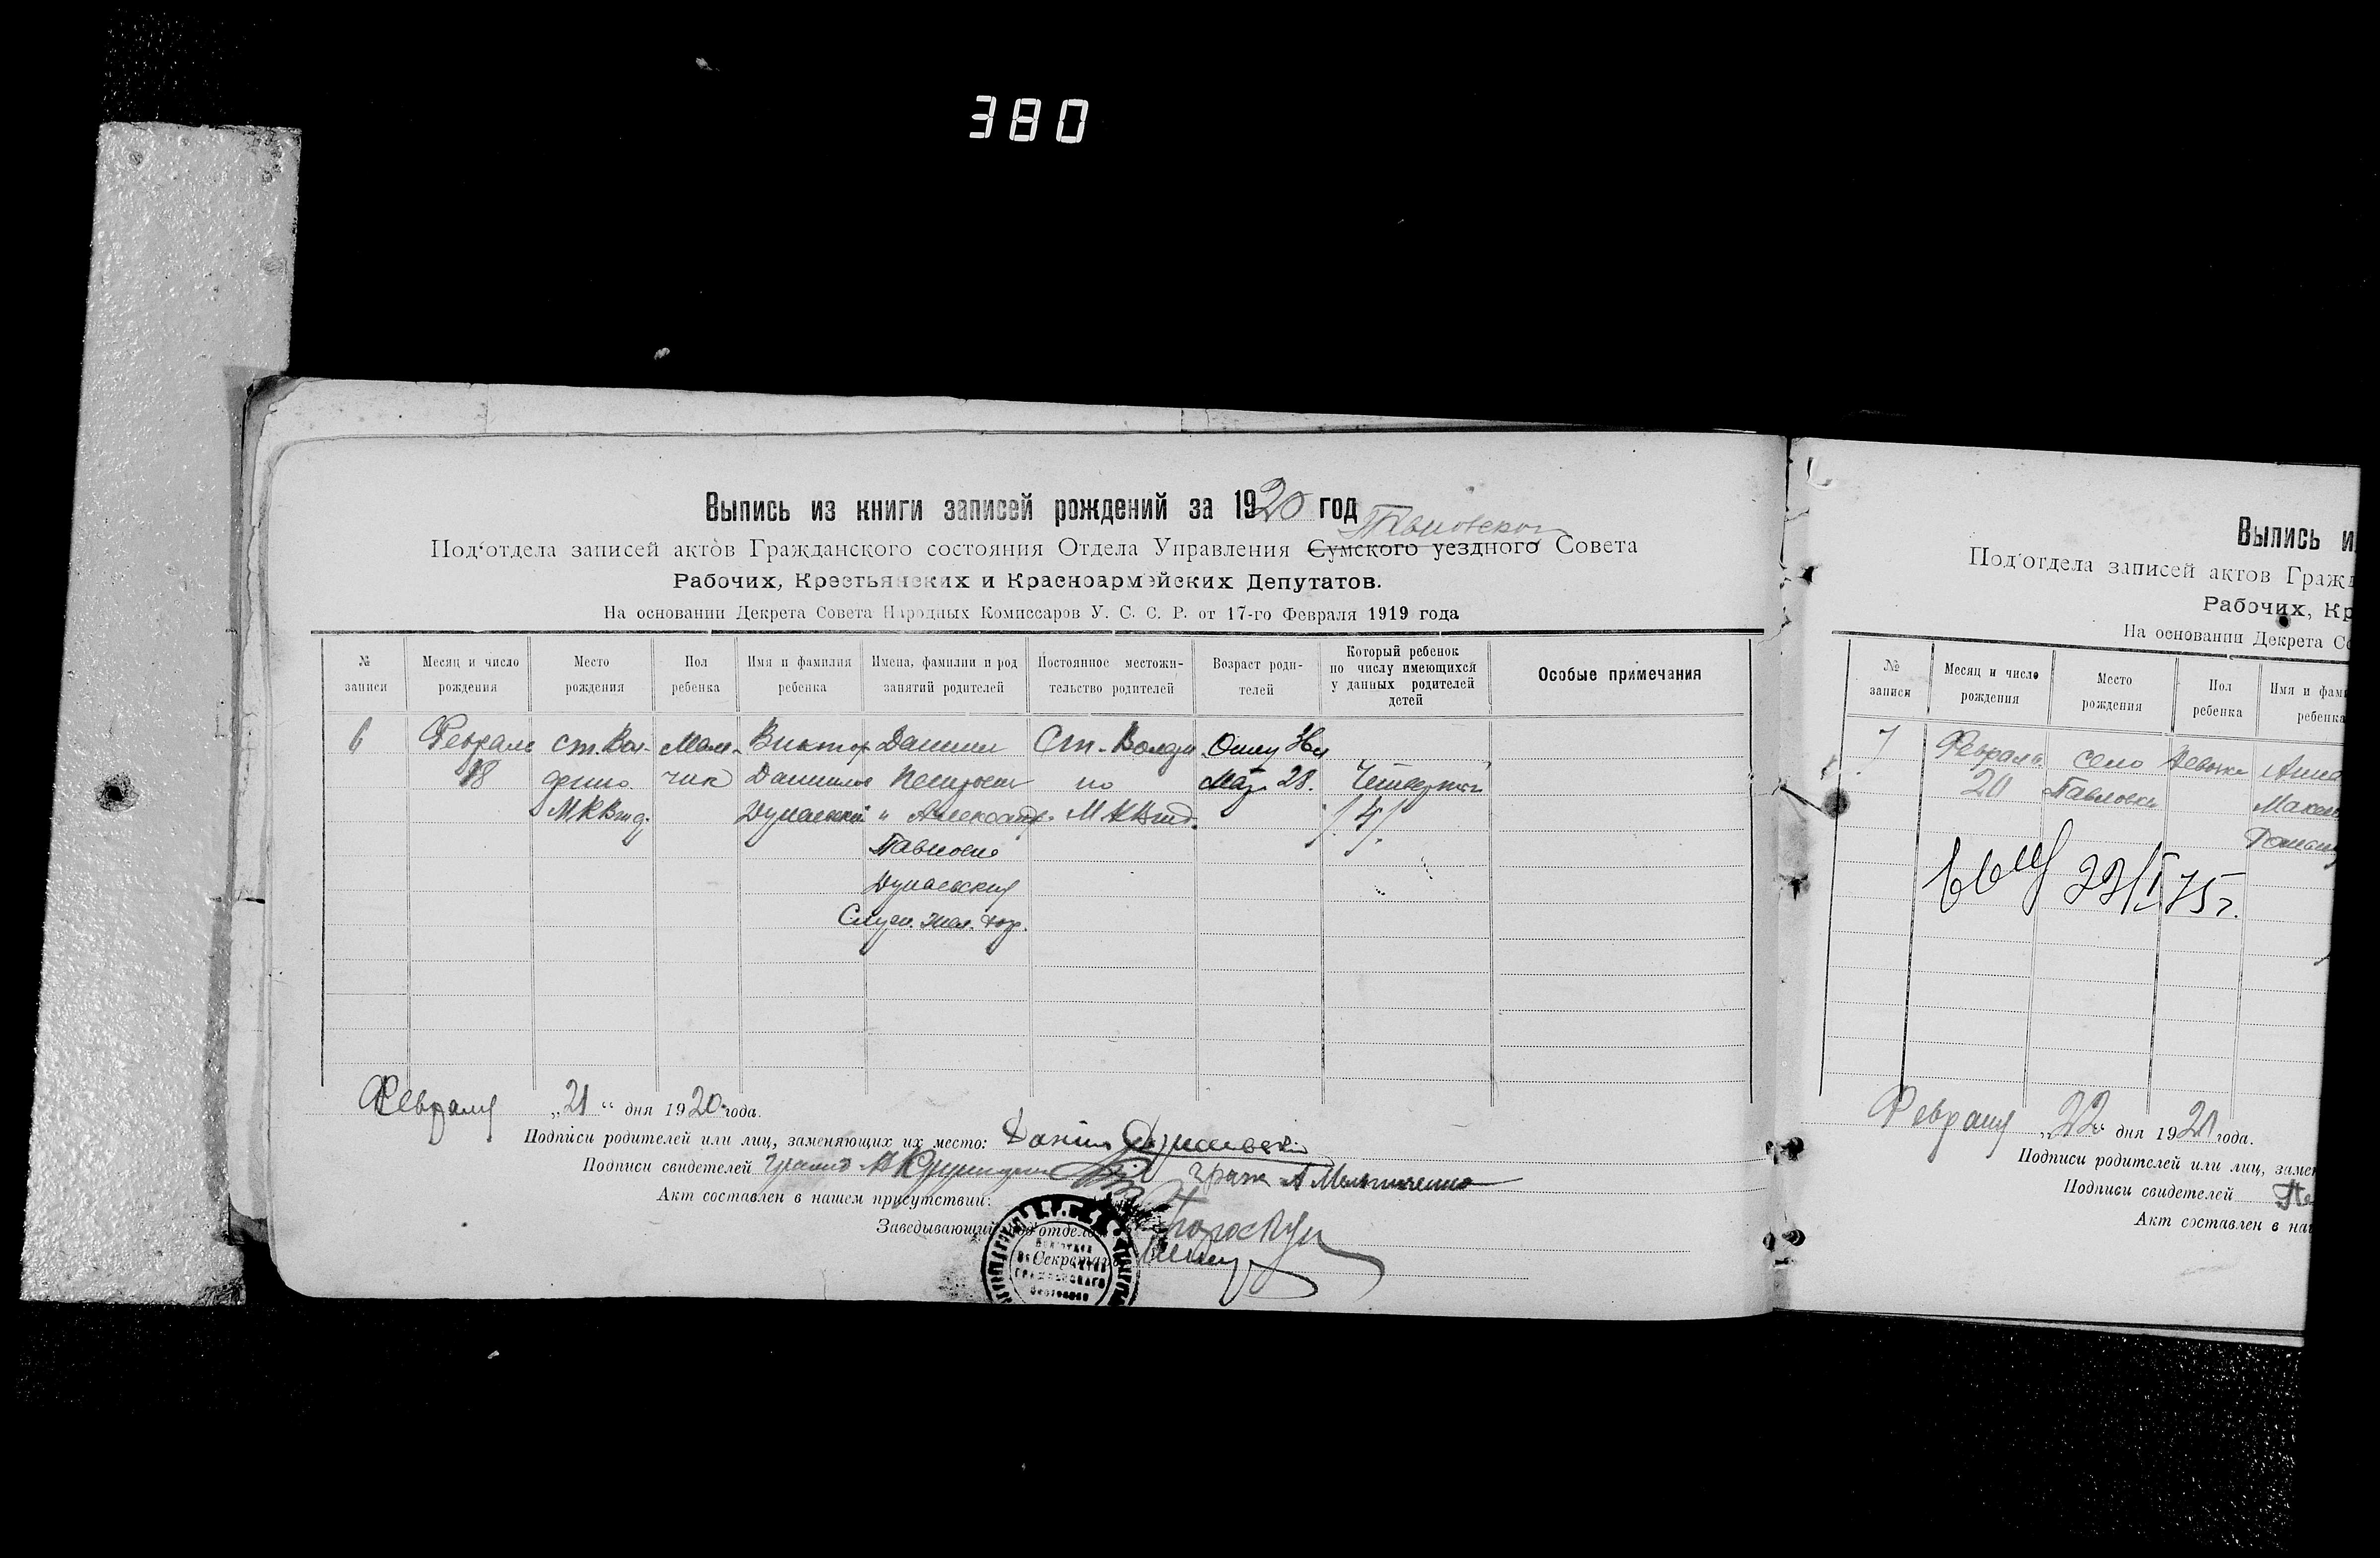 380
Выпись из книги записей рождений за 1920 год
Под'отдела записей актов Гражданского состояния Отдела Управления Сумского уездного Совета
Рабочих, Крестьянских и Красноармейских Депутатов.
На основании Декрета Совета Народных Комиссаров У. С. С. Р. от 17-го Февраля 1919 года
№ записи
Месяц и число рождения
Место рождения
Пол ребенка
Имя и фамилия ребенка
Имена, фамилии и род занятий родителей
Постоянное местожительство родителей
Возраст родителей
Который ребенок по числу имеющихся у данных родителей детей
Особые примечания
6
Февраля
18
ст. Вол-
М К В ж д.
Маль-
чик
Виктор
Данилов
Дунаевский
Даниил
и Александр.
Павловна
Дунаевские
Служ. жел. дор.
Ст.
но
М К В ж д.
Отцу 36 л
Мат. 28.
Четвертый
/4/.
Февраля „21“ дня 1920 года.
Подписи родителей или лиц, заменяющих их место: Даніил Дунаевскій
Подписи свидетелей гражд. граж А Мельниченко
Акт составлен в нашем присутствии:
Заведывающий под'отделом
Секретарь
Выпись и
Под'отдела записей актов Гражд
Рабочих, Кр
На основании Декрета Со
№ записи
Месяц и число рождения
Место рождения
Пол ребенка
Имя и фами
ребенка
7
Февраля
20
село
Павловка
Девочка
Анна
22/I 75 г.
Февраля „22“ дня 1920 года.
Подписи родителей или лиц, замен
Подписи свидетелей
Акт составлен в наш